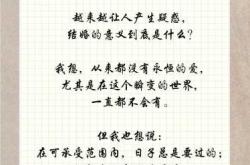 越来越让人产生疑惑，
结婚的意义到底是什么？
我想，从来都没有永恒的爱，
尤其是在这个瞬变的世界，
一直都不会有。
但我也想说：
在可承受范围内，日子总是要过的；